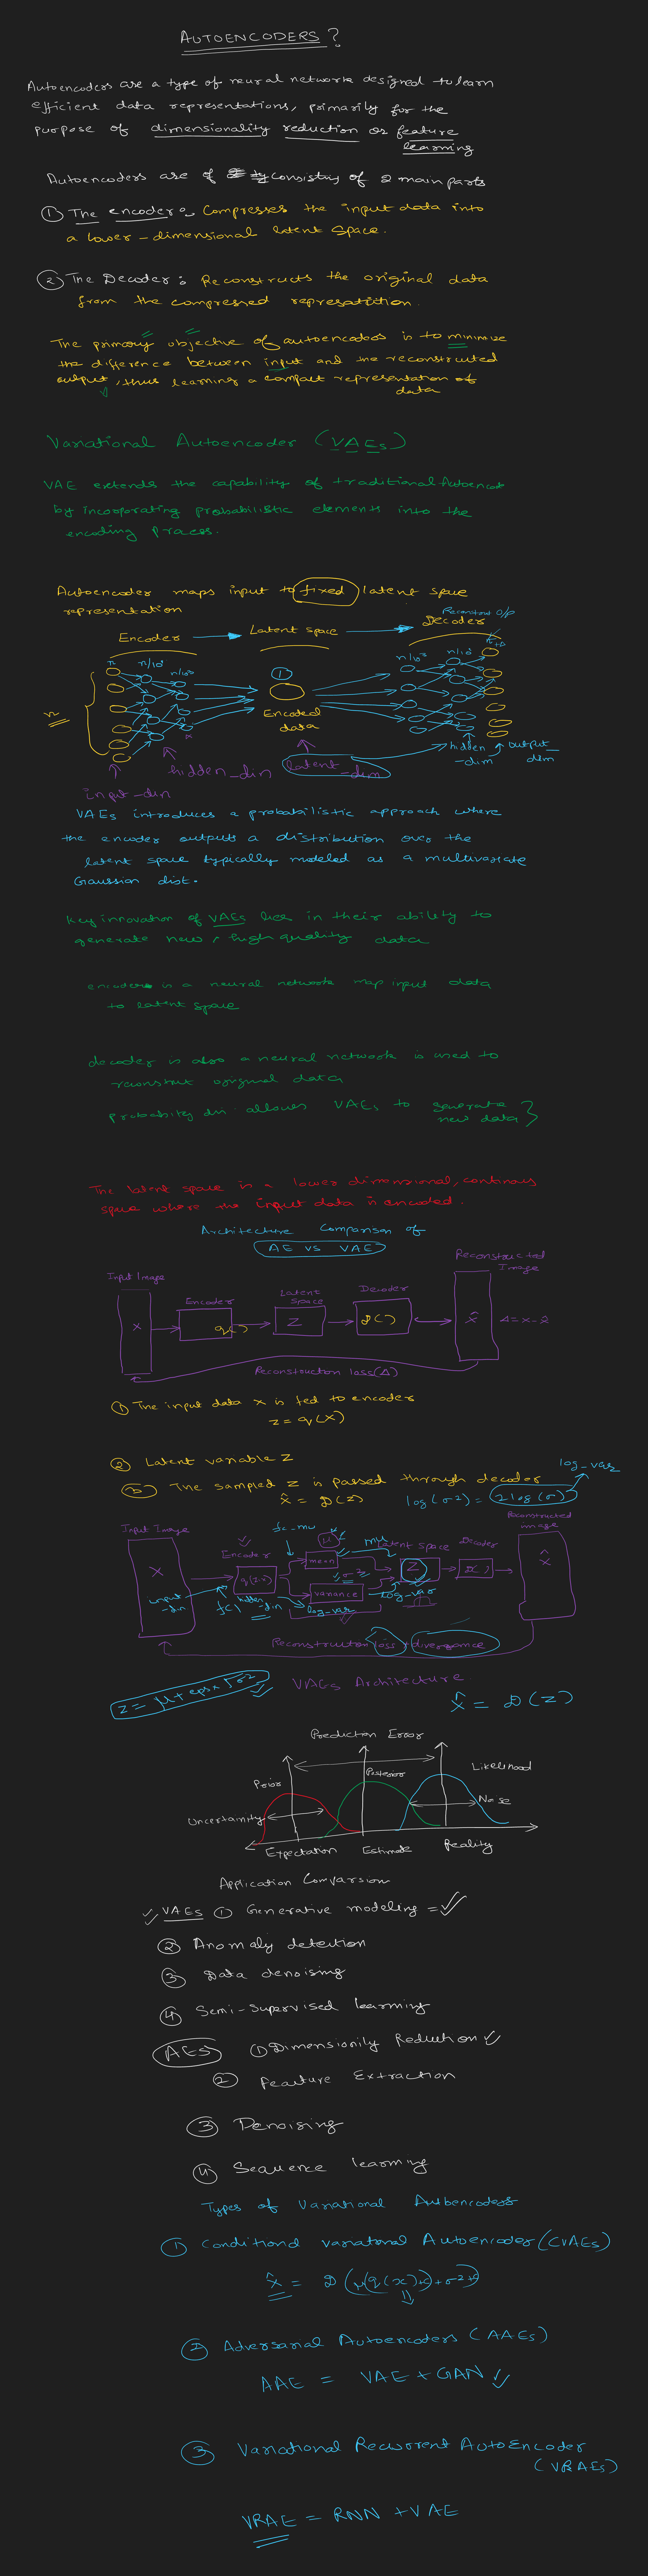 AUTOENCODERS?
Autoencoders are a type of neural network designed to learn
efficient data representations, primarily for the
purpose of dimensionality reduction or feature
learning
Autoencoders are of consisting of 2 main parts
① The encoder: Compresses the input data into
a lower-dimensional latent space.
② The Decoder: Reconstructs the original data
from the compressed
The primary objective of autoencoders is to minimize
the difference between input and the reconstructed
output, thus learning a compact representation of
data
Variational Autoencoder (VAEs)
VAE extends the capability of traditional
by incorporating probabilistic elements into the
encoding process.
Autoencoder maps input to fixed latent space
representation
Reconstruct O/P
Encoder
Latent space
Decoder
n
n/10
①
n
Encoded
data
hidden_dim
latent_dim
hidden
-dim
output_
dim
input_dim
VAEs introduces a probabilistic approach where
the encoder outputs a distribution over the
latent space typically modeled as a multivariate
Gaussian dist.
Key innovation of VAEs lies in their ability to
generate new, high quality data
encoder is a neural network map input data
to latent space
decoder is also a neural network is used to
reconstruct original data
probability allows VAEs to generate
new data}
The latent space is a lower dimensional, continous
space where the input data is encoded.
Architecture Comparison of
AE VS VAE
Input Image
Encoder
Latent
Space
Decoder
Reconstructed
Image
X
q()
Z
D()
X̂
Δ = x - x̂
Reconstruction loss(Δ)
① The input data x is fed to encoder
z = q(x)
② Latent variable z
③ The sampled z is passed through decoder
x̂ = D(z)
log(σ²) = 2log(σ)
log_var
Input Image
Encoder
fc_mu
μ
mu
Latent Space
Decoder
Reconstructed
image
X
mean
σ²
variance
Z
D()
X̂
input
-dim
fc1
hidden
-dim
log_var
log_var
Reconstruction loss + divergence
z = μ + eps x √σ²
VAEs Architecture
X̂ = D(z)
Prediction Error
Prior
Posterior
Likelihood
Uncertainity
Noise
Expectation
Estimate
Reality
Application Comparsion
VAEs ① Generative modeling =
② Anomaly detection
③ Data denoising
④ Semi-supervised learning
AEs ① Dimensionily Reduction
② Feature Extraction
③ Denoising
④ Sequence learning
Types of Variational Autoencoders
① Conditional variational Autoencoder (CVAEs)
② Adversarial Autoencoders (AAEs)
AAE = VAE + GAN
③ Variational Recurrent AutoEncoder
(VRAEs)
VRAE = RNN + VAE